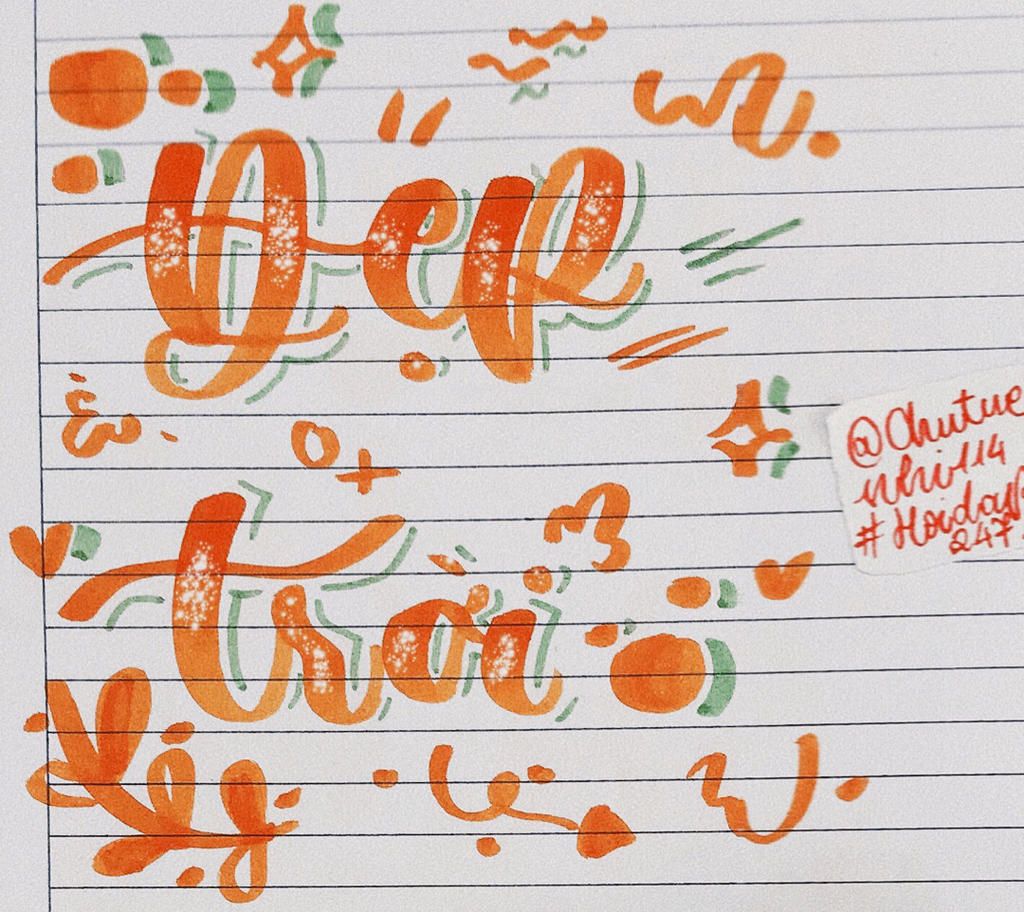 Đẹp
trời
@Chutue
nhi114
#Hoiday
247